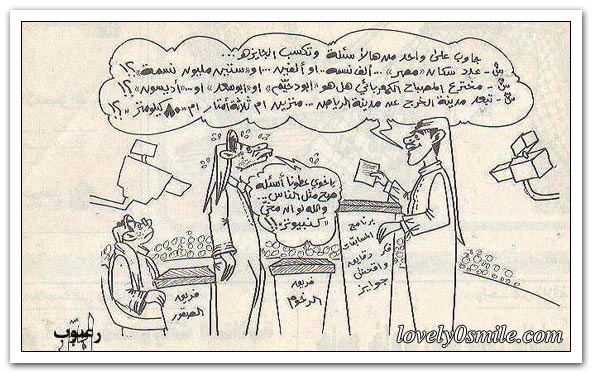 جاوب على واحد من هالأسئلة وتكسب الجايزه...
س - عدد سكان «مصر»... ألف نسمه.. او ألفين... او «ستين مليون نسمة»؟!
س - مخترع المصباح الكهربائي هل هو «ابو حثيم» او «ابو سعد» او... «أديسون»؟!
س - تبعد مدينة الخرج عن مدينة الرياض... مترين ام ثلاثة أمتار ام... ٨٠ كيلومتر..؟!
يا خوي عطونا أسئلة
صح مثل الناس..
والله لو انه مخي
«كمبيوتر»..!
برنامج
المسابقات
فكر دقايق
واقحش
جوايز
فريق
الصقور
فريق
الرخوم
رعبوب
lovely0smile.com